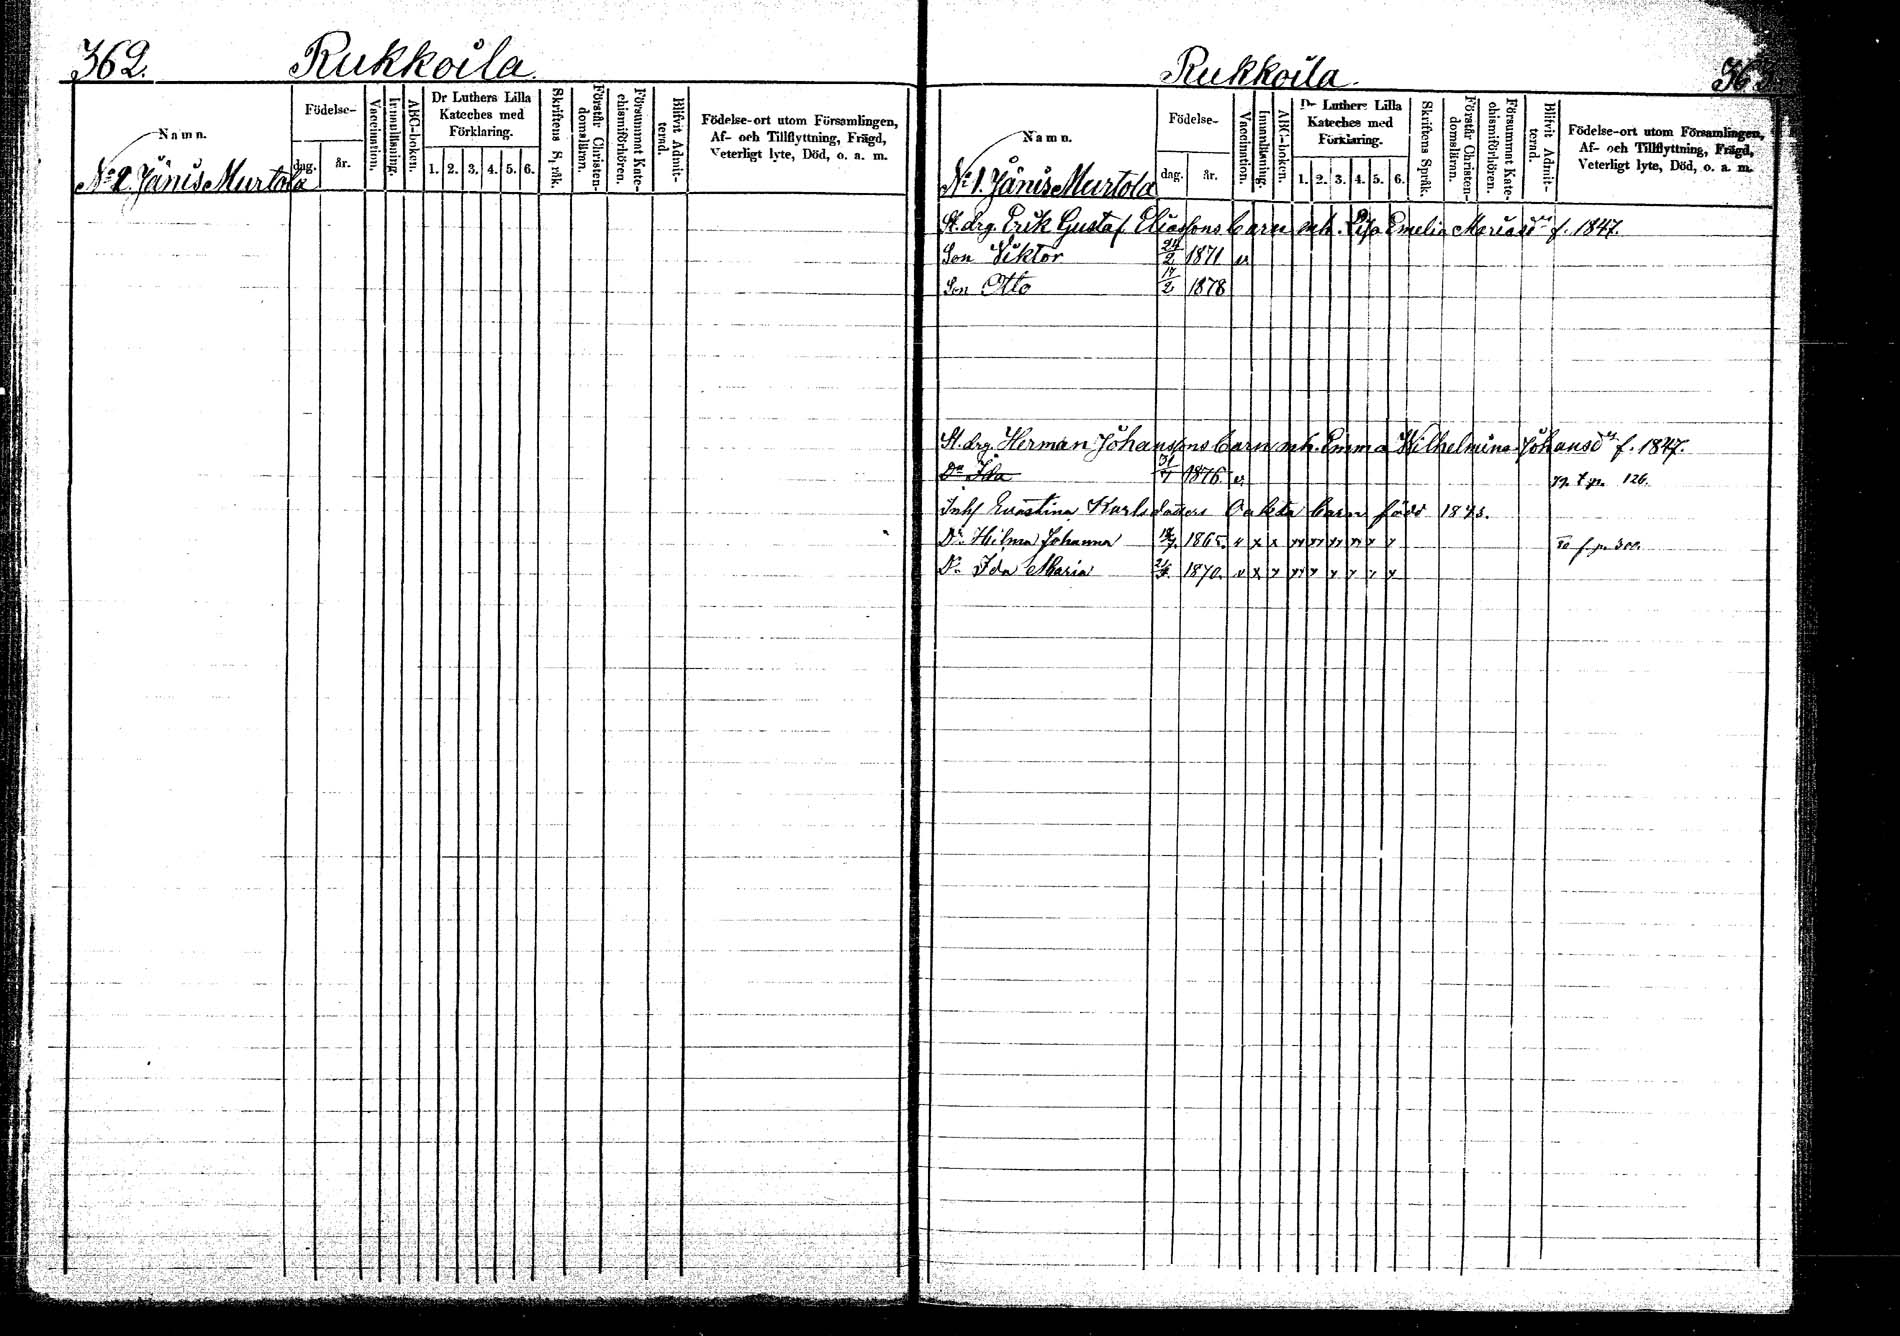 362.
Rukkoila.
Namn.
Födelse-
dag.
år.
Vaccination.
Innanläsning.
ABC-boken.
Dr Luthers Lilla Kateches med Förklaring.
1. 2. 3. 4. 5. 6.
Skriftens Språk.
Förstår Christen-
domslärnn.
Försummat Kate-
chismiförhören.
Blifvit Admit-
terad.
Födelse-ort utom Församlingen,
Af- och Tillflyttning, Frägd,
Veterligt lyte, Död, o. a. m.
No 2. Jänis Murtola
Rukkoila.
363.
Namn.
Födelse-
dag.
år.
Vaccination.
Innanläsning.
ABC-boken.
Dr Luthers Lilla
Kateches med
Förklaring.
1. 2. 3. 4. 5. 6.
Skriftens Språk.
Förstår Christen-
domslärnn.
Försummat Kate-
chismiförhören.
Blifvit Admit-
terad.
Födelse-ort utom Församlingen,
Af- och Tillflyttning, Frägd,
Veterligt lyte, Död, o. a. m.
No 1. Jänis Murtola
St. drg. Erik Gustaf Eliassons barn mh. Lisa Emelia Mariasdr f. 1847.
Son Viktor 24/2 1871 v
Son Otto 17/2 1878
St. drg. Herman Johanssons barn mh. Emma Wilhelmina Johansdr f. 1847.
Dr Ida 1876. v 126.
Inh Karlsdotters Oakta barn född
Dr. Hilma Johanna 1865. v x x
Dr. Ida Maria 1870. v x